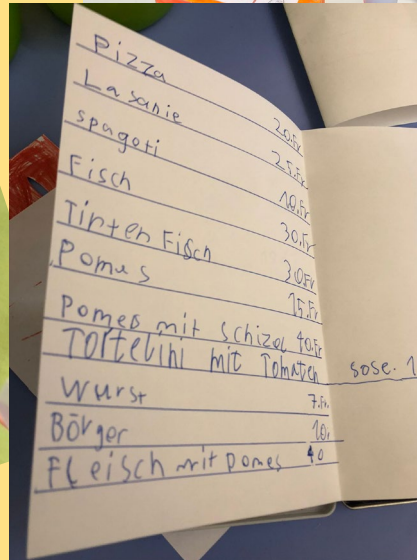 Pizza 20.Fr
Lasanie 25.Fr
spagoti 10.Fr
Fisch 30.Fr
Tinten Fisch 30.Fr
Pomus 15.Fr
Pomes mit schizel 40.Fr
Tortelini mit Tomaten sose. 1
Wurst 7.Fr.
Börger 10.
Fleisch mit pomes 40